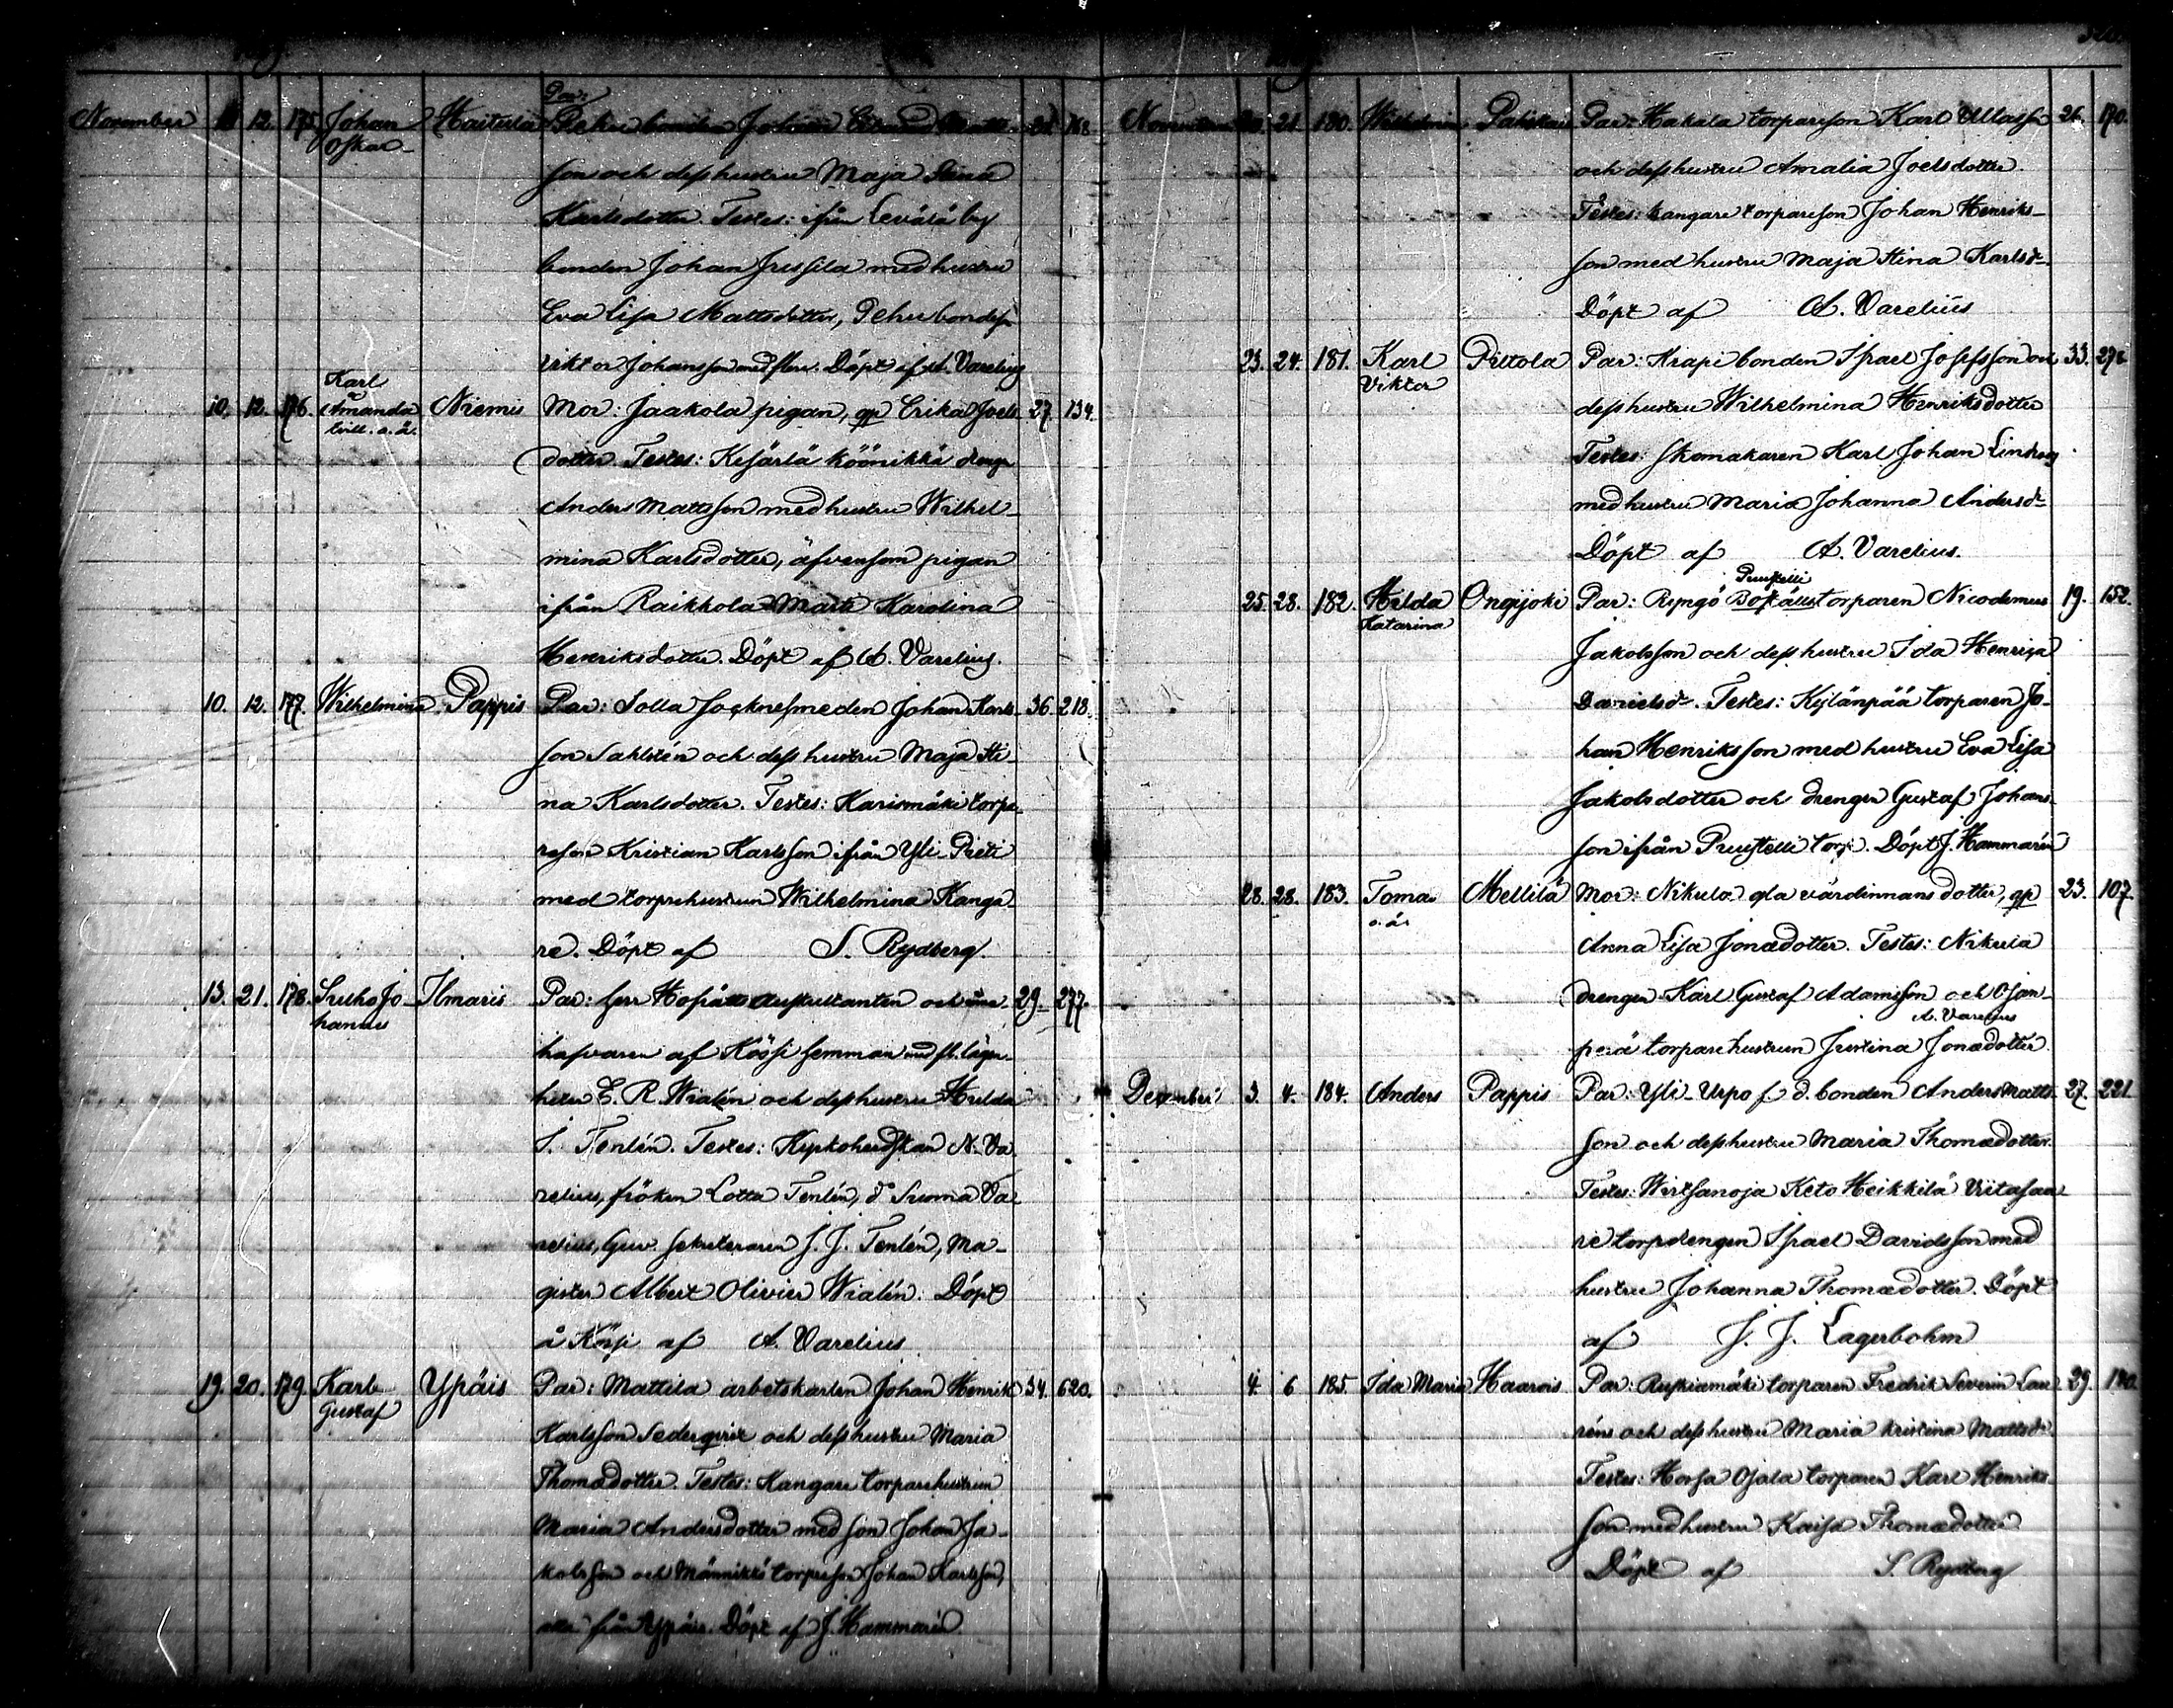 November 12. 175. Johan Haitula Par:
Oskar Pehu bonden Johan 168.
son och dess hustru Maja Stina
Karlsdotter. Testes: ifrån Levälä by
bonden Johan Jussila med hustru
Eva Lisa Mattsdotter, Pehu bondeson
Viktor Johansson med flere. Döpt af A. Varelius
Karl
10. 12. 176. Amanda Niemis Mor: Jaakola pigan, qp Erika Joels 27. 134.
tvill. o.ä. dotter. Testes: Kesärlä Köönikkä dreng
Anders Mattsson med hustru Wilhel-
mina Karlsdotter, äfvensom pigan
ifrån Raikkola Martti Karolina
Henriksdotter. Döpt af A. Varelius.
10. 12. 177. Wilhelmina Pappis Par: Solla Socknesmeden Johan Karls- 36. 218.
son Sahlstén och dess hustru Maja Sti-
na Karlsdotter. Testes: Karismäki torpa-
reson Kristian Karlsson ifrån Yli Preti
med torparehustrun Wilhelmina Kanga-
re. Döpt af S. Rydberg.
13. 21. 178. Sulho Jo- Ilmaris Par: herr Hofrätts Auskultanten och inne- 29. 277.
hannes
hafvaren af Köösi hemman med fl. lägen-
heter E. R. Wialén och dess hustru Hilda
S. Tenlén. Testes: Kyrkoherdskan N. Va-
relius, fröken Lotta Tenlén, do Suoma Va-
relius, Guv. sekreteraren J. J. Tenlén, Ma-
gister Albert Olivier Wialén. Döpt
å Köösi af A. Varelius
19. 20. 179. Karl Ypäis Par: Mattila arbetskarlen Johan Henrik 34. 620.
Gustaf Karlsson Sederqvist och dess hustru Maria
Thomædotter. Testes: Kangare torparehustrun
Maria Andersdotter med son Johan Ja-
kobsson och Männikkö torpareson Johan Karlsson,
alla från Ypäis. Döpt af J. Hammarén
21. 180. Wilhelmina Par: Hakala torpareson Karl Ullasson 26. 170.
och dess hustru Amalia Joelsdotter.
Testes: Kangare torpareson Johan Henriks-
son med hustru Maja Stina Karlsdr
Döpt af A. Varelius
23. 24. 181. Karl Pittola Par: Krapi bonden Israel Josefsson och 33. 278.
Viktor dess hustru Wilhelmina Henriksdotter
Testes: Skomakaren Karl Johan Lindberg
med hustru Maria Johanna Andersdr
Döpt af A. Varelius.
Prustelli
25. 28. 182. Hilda Ongijoki Par: Ryngö Boställstorparen Nicodemus 19. 152.
Katarina
Jakobsson och dess hustru Ida Henrica
Danielsdr. Testes: Kylänpää torparen Jo-
han Henriksson med hustru Eva Lisa
Jakobsdotter och drengen Gustaf Johans-
son ifrån Prustelli torp. Döpt J. Hammarén
28. 28. 183. Tomas Mellilä Mor: Nikula gla värdinnans dotter, qp 23. 107.
o.ä.
Anna Lisa Jonædotter. Testes: Nikula
drengen Karl Gustaf Adamsson och Ojan-
A. Varelius
perä torparehustrun Justina Jonædotter.
December 3. 4. 184. Anders Pappis Par: Yli Urpo f. d. bonden Anders Matts- 27. 221.
son och dess hustru Maria Thomædotter.
Testes: Wirtsanoja Keto Heikkilä Viitasaa-
re torpdrengen Israel Davidsson med
hustru Johanna Thomædotter. Döpt
af J. J. Lagerbohm
4. 6. 185. Ida Maria Haarois Par: Ruskiamäki torparen Fredrik Severin Lau- 29. 180.
réns och dess hustru Maria Kristina Mattsdr
Testes: Horsa Ojala torparen Karl Henriks-
son med hustru Kaisa Thomædotter
Döpt af S. Rydberg